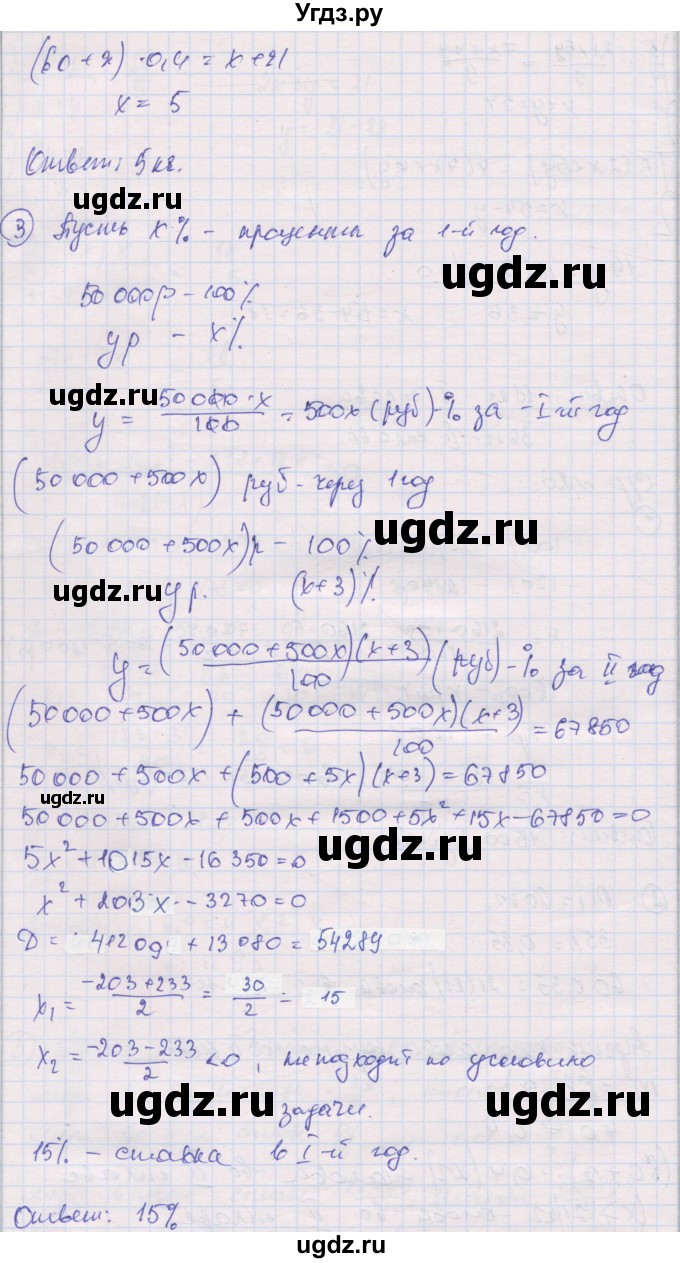 Угдз.ру
(60 + x) · 0,4 = x + 21
x = 5
Ответ: 5 кг.
ugdz.ru
3 Пусть x% - проценты за 1-й год.
ugdz.ru
50 000р - 100%
yр - x%
ugdz.ru
y = 50 000 · x / 100 = 500x (руб) - % за - I-й год
(50 000 + 500x) руб - через 1 год
ugdz.ru
(50 000 + 500x)р - 100%
ugdz.ru
yр. (x+3)%
y = (50 000 + 500x)(x+3) / 100 (руб) - % за II год
ugdz.ru
(50 000 + 500x) + (50 000 + 500x)(x+3) / 100 = 67850
50 000 + 500x + (500 + 5x)(x+3) = 67850
ugdz.ru
50 000 + 500x + 500x + 1500 + 5x² + 15x - 67850 = 0
ugdz.ru
5x² + 1015x - 16 350 = 0
x² + 203x - 3270 = 0
D = 41209 + 13 080 = 54289
x₁ = -203 + 233 / 2 = 30 / 2 = 15
ugdz.ru
x₂ = -203 - 233 / 2 < 0, не подходит по условию
задачи.
ugdz.ru
ugdz.ru
15% - ставка в I-й год.
ugdz.ru
Ответ: 15%
ugdz.ru